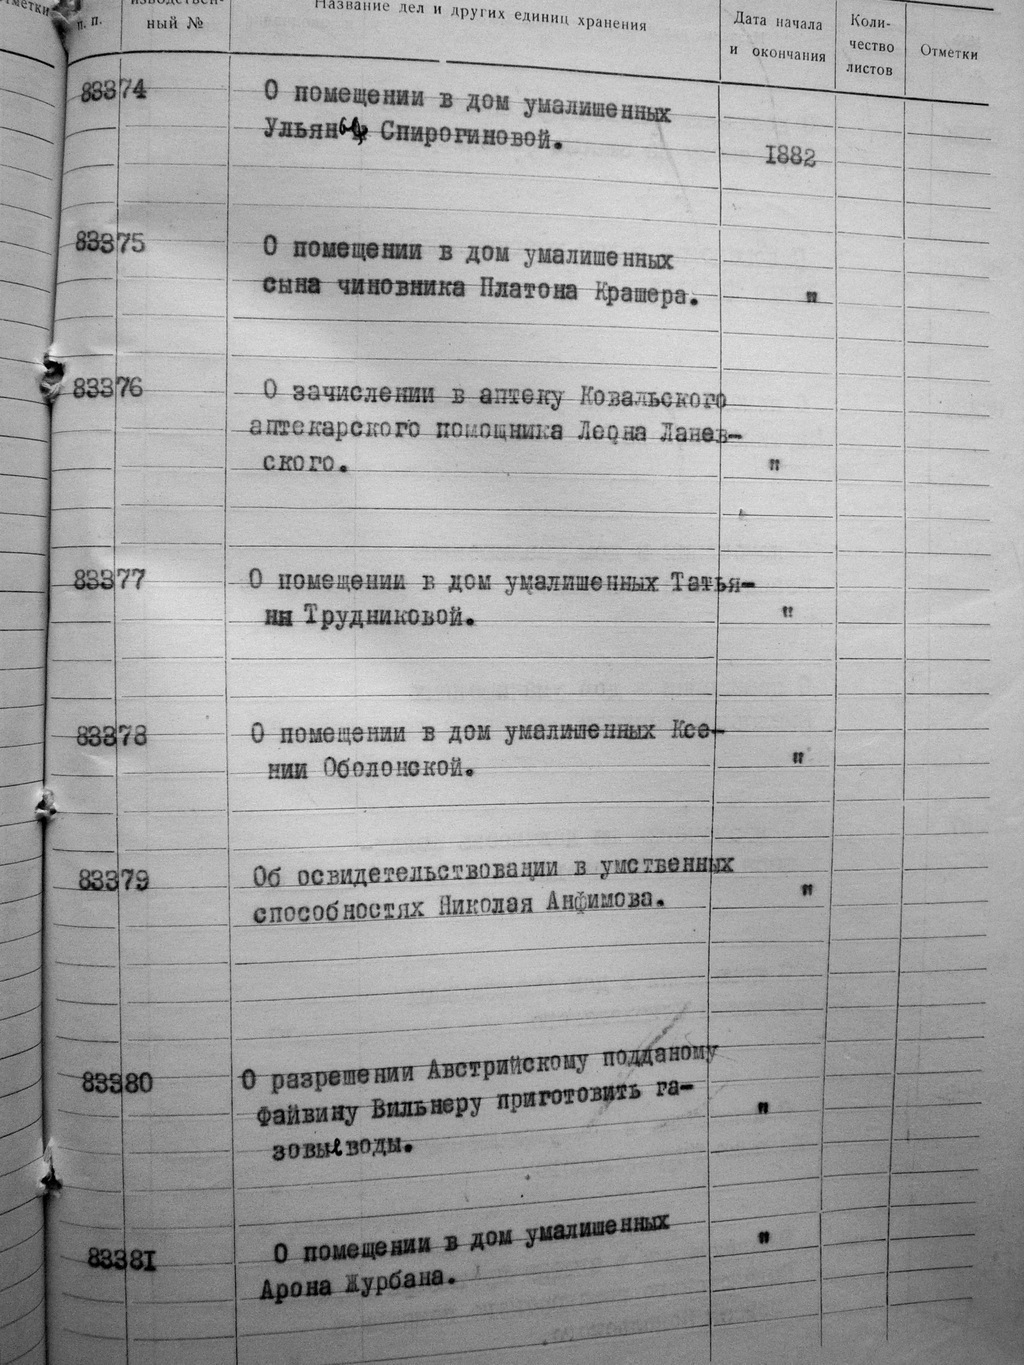 п. п.
ный №
Название дел и других единиц хранения
Дата начала
и окончания
Коли-
чество
листов
Отметки
83374
О помещении в дом умалишенных
Ульяны Спирогиновой.
1882
83375
О помещении в дом умалишенных
сына чиновника Платона Крашера.
"
83376
О зачислении в аптеку Ковальского
аптекарского помощника Леона Ланев-
ского.
"
83377
О помещении в дом умалишенных Татья-
ны Трудниковой.
"
83378
О помещении в дом умалишенных Ксе-
нии Оболонской.
"
83379
Об освидетельствовании в умственных
способностях Николая Анфимова.
"
83380
О разрешении Австрийскому подданому
Файвину Вильнеру приготовить га-
зовые воды.
"
83381
О помещении в дом умалишенных
Арона Журбана.
"